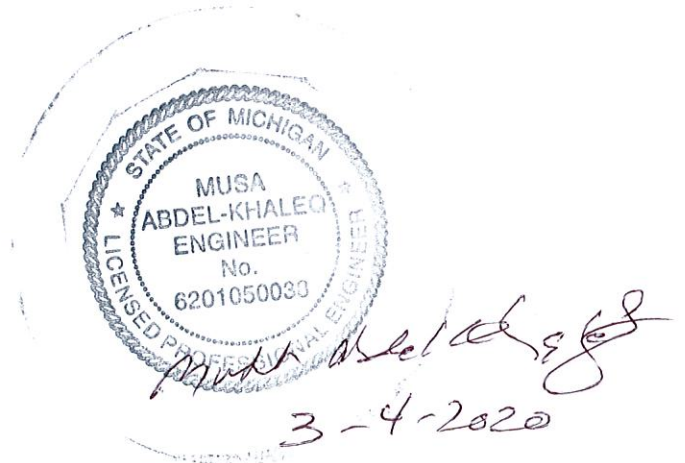 STATE OF MICHIGAN
MUSA
ABDEL-KHALEQ
ENGINEER
No.
6201050030
LICENSED PROFESSIONAL ENGINEER
3-4-2020